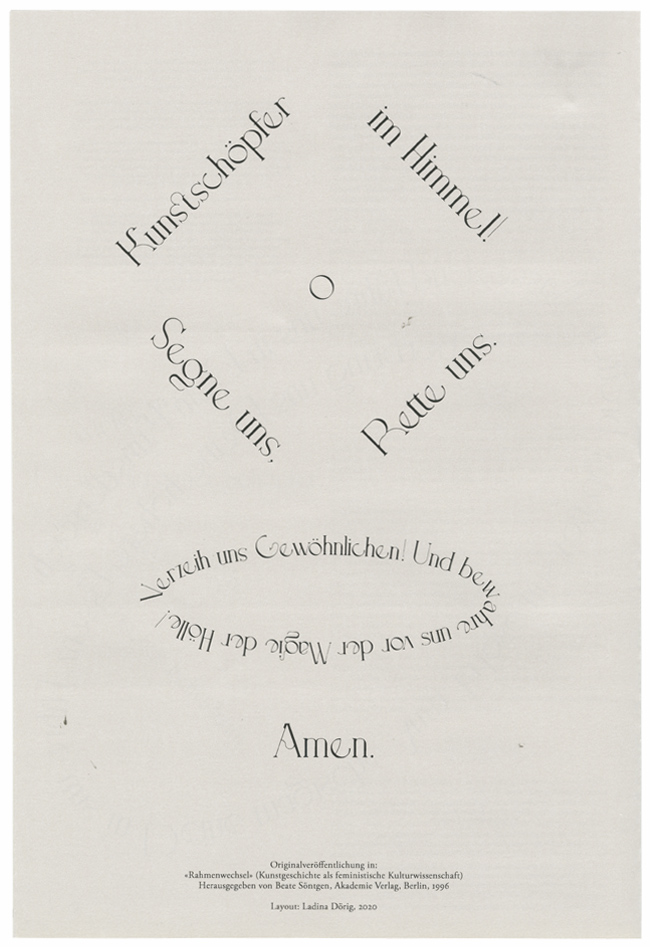 Kunstschöpfer
im Himmel!
O
Segne uns,
Rette uns.
Verzeih uns Gewöhnlichen! Und bewahre uns vor der Magie der Hölle!
Amen.
Originalveröffentlichung in:
«Rahmenwechsel» (Kunstgeschichte als feministische Kulturwissenschaft)
Herausgegeben von Beate Söntgen, Akademie Verlag, Berlin, 1996
Layout: Ladina Dörig, 2020